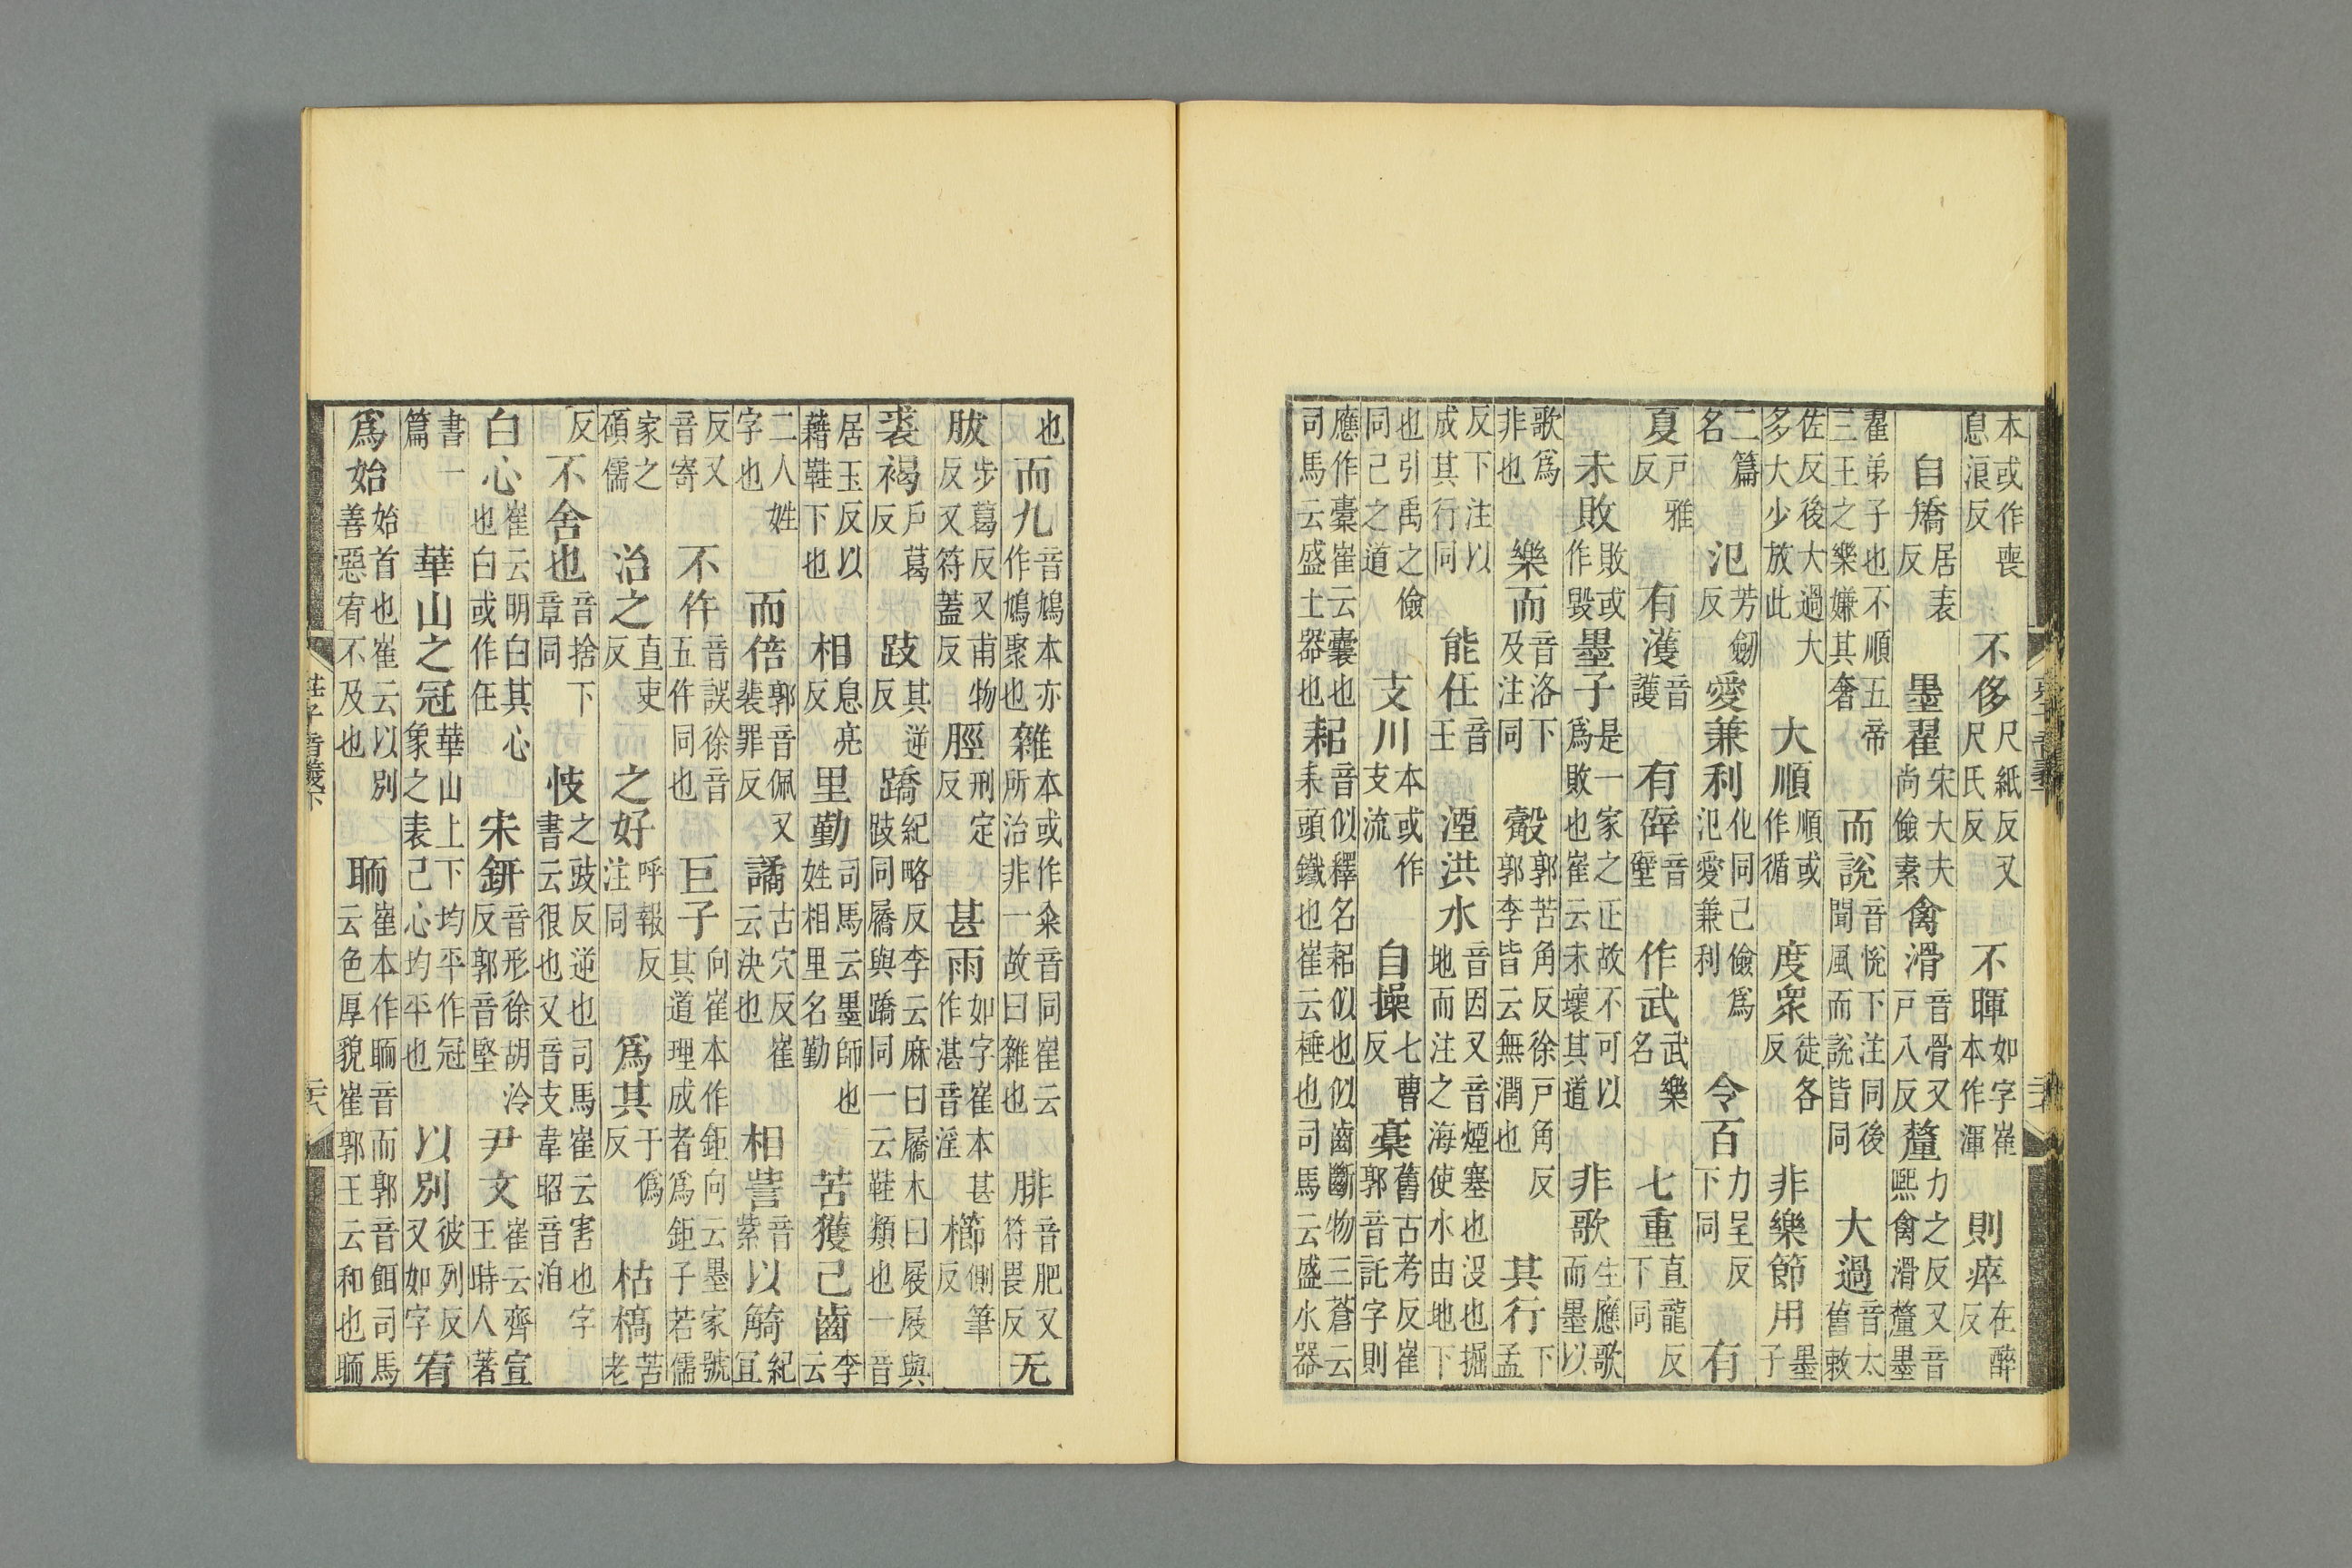 本或作喪息浪反 不侈尺紙反又尺氏反 不暉如字崔本作渾 則瘁在醉反
自矯居表反 墨翟宋大夫尚儉素 禽滑音骨又戶八反 釐力之反又音熙禽滑釐墨
翟弟子也不順五帝三王之樂嫌其奢 而說音悅下注同後聞風而說皆同 大過音太舊敕
佐反後大過大多大少放此 大順順或作循 度眾徒各反 非樂節用墨子
二篇名 氾芳劒反 愛兼利化同己儉爲氾愛兼利 令百力呈反下同 有
夏戶雅反 有濩音護 有辟音璧 作武武樂名 七重直龍反下同
未敗敗或作毀 墨子是一家之正故不可以爲敗也崔云未壞其道 非歌生應歌而墨以
歌爲非也 樂而音洛下及注同 觳郭苦角反徐戶角反郭李皆云無潤也 其行下孟
反下注以成其行同 能任音王 湮洪水音因又音煙塞也沒也掘地而注之海使水由地下
也引禹之儉同己之道 支川本或作支流 自操七曹反 橐舊古考反崔郭音託字則
應作橐崔云囊也司馬云盛土器也 耜音似釋名耜似也似齒斷物三蒼云耒頭鐵也崔云棰也司馬云盛水器
莊子音義下
也 而九音鳩本亦作鳩聚也 雜本或作籴音同崔云所治非一故曰雜也 腓音肥又符畏反 无
胈步葛反又甫物反又符蓋反 脛刑定反 甚雨如字崔本甚作湛音淫 櫛側筆反
裘褐戶葛反 跂其逆反 蹻紀略反李云麻曰屩木曰屐屐與跂同屩與蹻同一云鞋類也一音
居玉反以藉鞋下也 相息亮反 里勤司馬云墨師也姓相里名勤 苦獲己齒李云
二人姓字也 而倍郭音佩又裴罪反 譎古穴反崔云決也 相訾音紫 以觭紀宜
反又音寄 不仵音誤徐音五仵同也 巨子向崔本作鉅向云墨家號其道理成者爲鉅子若儒
家之碩儒 治之直吏反 之好呼報反注同 爲其于僞反 枯槁苦老
反 不舍也音捨下章同 忮之豉反逆也司馬崔云害也字書云很也又音支韋昭音洎
白心崔云明白其心也白或作任 宋鈃音形徐胡冷反郭音堅 尹文崔云齊宣王時人著
書一篇 華山之冠華山上下均平作冠象之表己心均平也 以別彼列反又如字 宥
爲始始首也崔云以別善惡宥不及也 聏崔本作聏音而郭音餌司馬云色厚貌崔郭王云和也聏